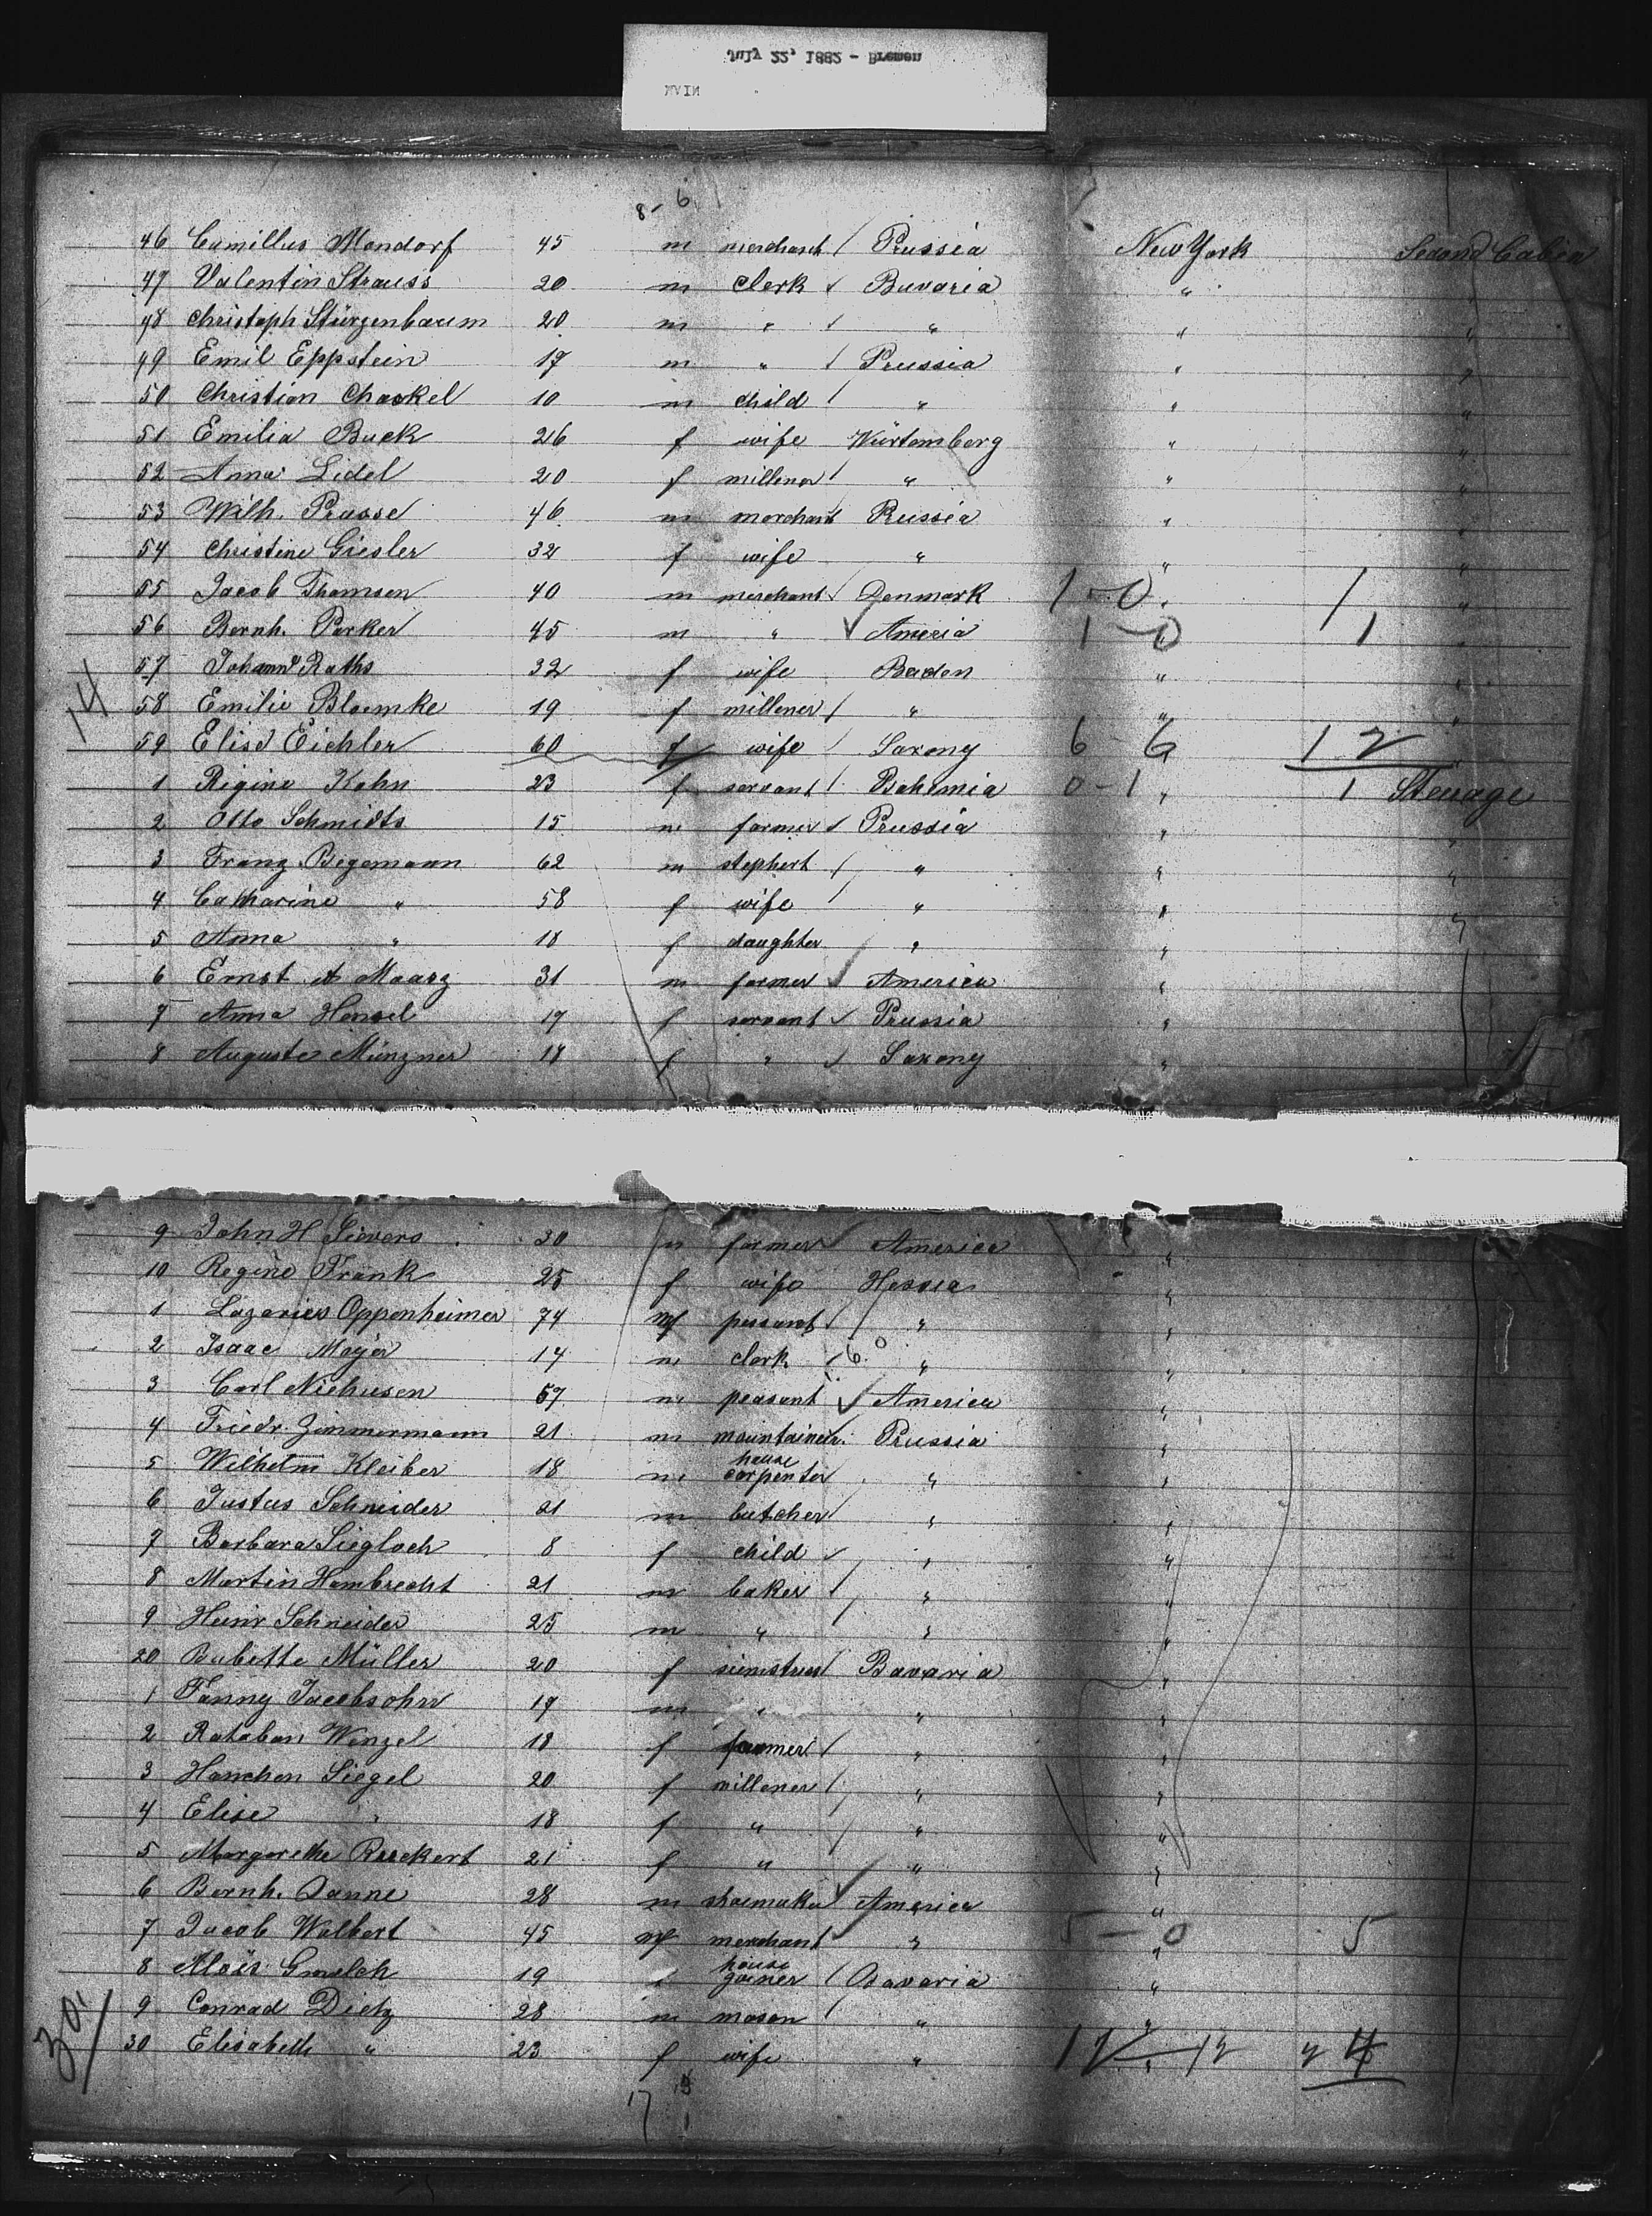 July 22, 1882 - Bremen
MAIN
8 - 6
46 Camillus Mondorf 45 m merchant / Prussia New York Second Cabin
47 Valentin Strauss 20 m clerk √ Bavaria " "
48 Christoph Stürzenbaum 20 m " √ " " "
49 Emil Eppstein 17 m " / Prussia " "
50 Christian Chaskel 10 m child / " " "
51 Emilia Buck 26 f wife Würtemberg " "
52 Anna Lidel 20 f millener / " " "
53 Wilh. Prasse 46 m merchant Prussia " "
54 Christine Giesler 32 f wife " " "
55 Jacob Thomsen 40 m merchant √ Denmark 1-0 " 1 "
56 Bernh. Parker 45 m " √ Ameria 1-0 " 1 "
57 Johanne Raths 32 f wife Baden " "
14 58 Emilie Bloemke 19 f millener / " " "
59 Elise Eichler 60 f wife / Saxony 6-6 12 "
1 Regine Kohn 23 f servant / Bohemia 0-1 " 1 Steuage
2 Otto Schmidts 15 m farmer √ Prussia " "
3 Franz Begemann 62 m stephert / " " "
4 Catharine " 58 f wife / " " "
5 Anna " 18 f daughter " " "
6 Ernst A Maasz 31 m farmer √ America "
7 Anna Hensel 17 f servant √ Prussia "
8 Auguste Münzner 18 f " √ Saxony "
9 John H Sievers 30 m farmer America "
10 Regine Frank 25 f wife Hessia "
1 Lazarus Oppenheimer 74 m peasant / " "
2 Isaac Mayer 14 m clerk / 6.0 " "
3 Carl Niehusen 57 m peasant √ America "
4 Friedr. Zimmermann 21 m mountaineer Prussia "
5 Wilhelm Kleiber 18 m house carpenter " "
6 Justus Schneider 21 m butcher " "
7 Barbara Siegloch 8 f child √ " "
8 Martin Hambrecht 21 m baker / " "
9 Heinr Schneider 25 m " / " "
20 Babette Müller 20 f siemstress / Bavaria "
1 Fanny Jacobsohn 17 m " " "
2 Rataban Wenzel 18 f farmer / " "
3 Hannchen Siegel 20 f millener / " "
4 Elise " 18 f " / " "
5 Margarethe Rueckert 21 f " / " "
6 Bernh. Danne 28 m shoemaker √ America "
7 Jacob Walbert 45 m merchant √ " 5-0 " 5
8 Alois Gmelch 19 house goiner / Bavaria "
9 Conrad Dietz 28 m mason / " "
30 30 Elisabeth " 23 f wife " 12 12 24
17 13